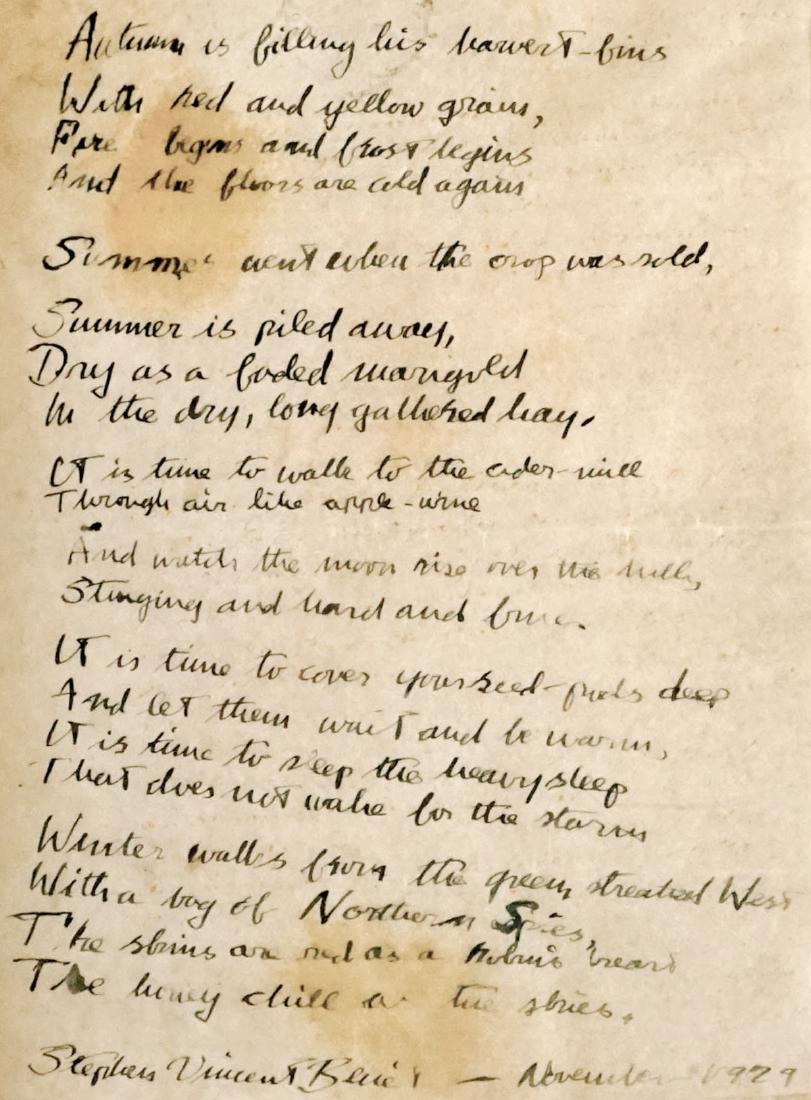 Autumn is filling his harvest-bins
With red and yellow grain,
Fire begins and frost begins
And the floors are cold again
Summer went when the crop was sold,
Summer is piled away,
Dry as a faded marigold
In the dry, long gathered hay.
It is time to walk to the cider-mill
Through air like apple-wine
And watch the moon rise over the hills,
Stinging and hard and fine.
It is time to cover your seed-pods deep
And let them wait and be warm,
It is time to sleep the heavy sleep
That does not wake for the storm
Winter walks from the green, streaked West
With a bag of Northern Spies,
The skins are red as a robin's breast
The honey chill as the skies.
Stephen Vincent Benét — November 1929